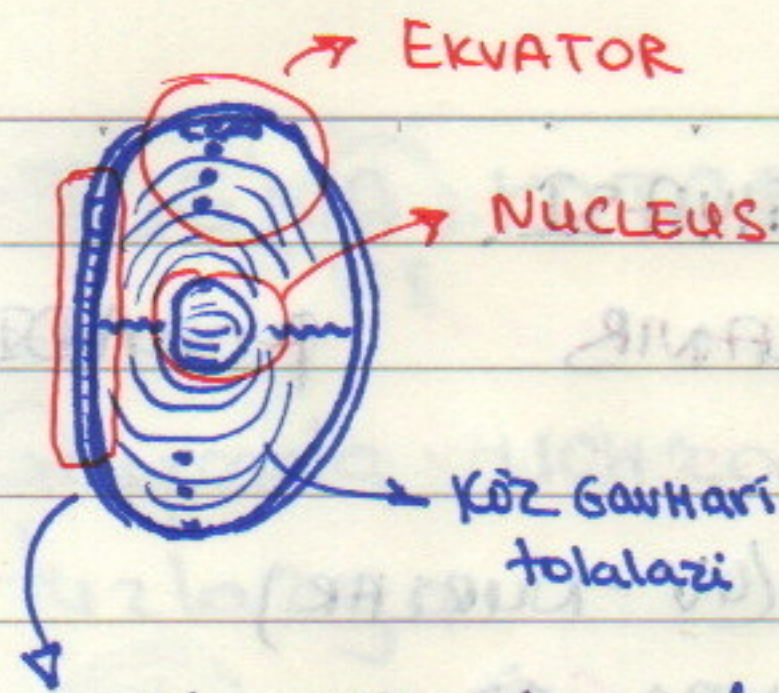 EKVATOR
NUCLEUS.
KO'Z GAVHARI
tolalari